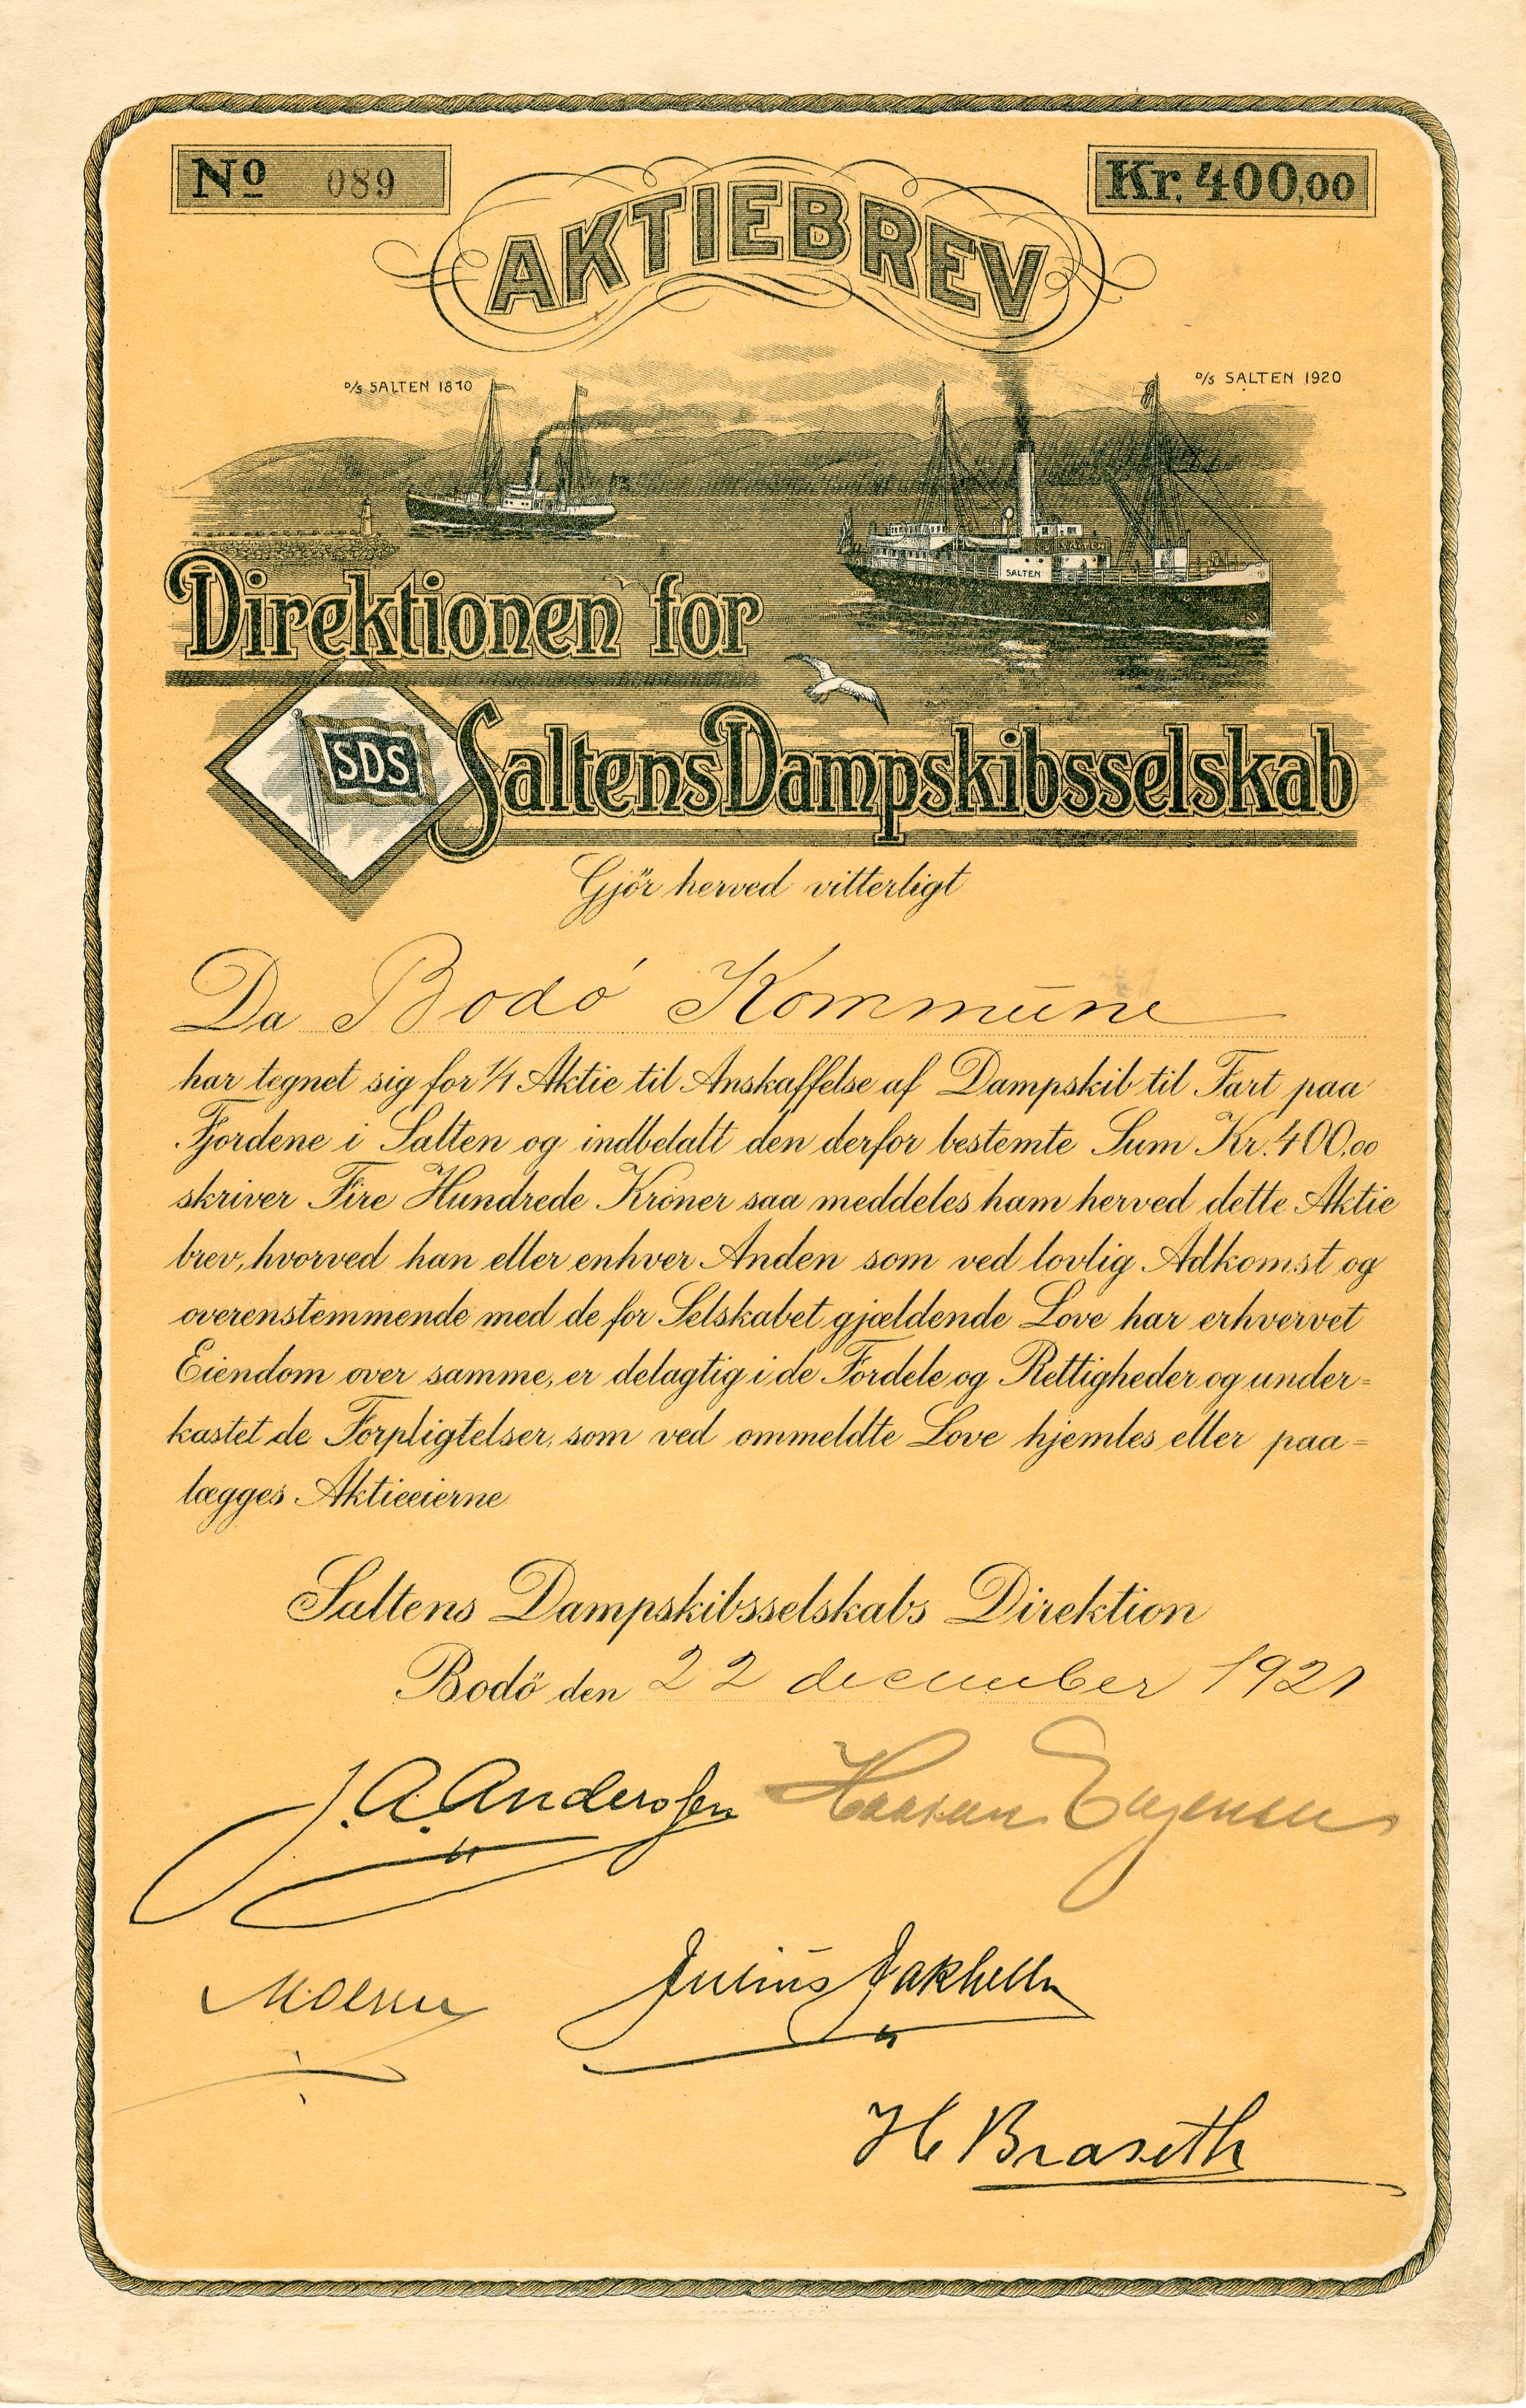 No 089
Kr. 400,00
AKTIEBREV
D/S SALTEN 1870
D/S SALTEN 1920
SALTEN
Direktionen for
SDS
Saltens Dampskibsselskab
Gjör herved vitterligt
Da Bodó Kommune
har tegnet sig for 1/1 Aktie til Anskaffelse af Dampskib til Fart paa
Fjordene i Salten og indbetalt den derfor bestemte Sum Kr. 400,00
skriver Fire Hundrede Kroner saa meddeles ham herved dette Aktie
brev, hvorved han eller enhver Anden som ved lovlig Adkomst og
overenstemmende med de for Selskabet gjældende Love har erhvervet
Eiendom over samme, er delagtig i de Fordele og Rettigheder og under=
kastet de Forpligtelser, som ved ommeldte Love hjemles eller paa=
lægges Aktieeierne
Saltens Dampskibsselskabs Direktion
Bodö den 22 december 1921
J. A. Andersen
Haakan
M Olsen
Julius Jakhelln
H Braseth